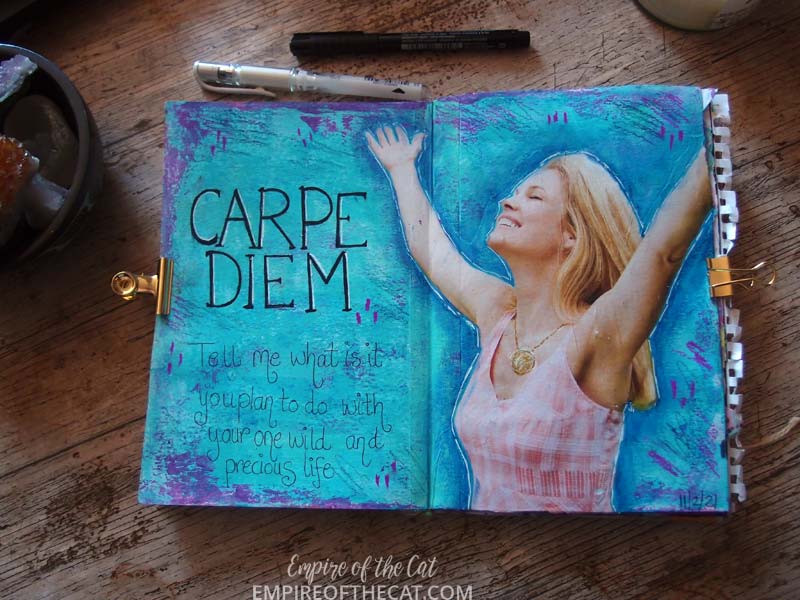 CARPE
DIEM
Tell me what is it
you plan to do with
your one wild and
precious life
11/2/21
Empire of the Cat
EMPIREOFTHECAT.COM